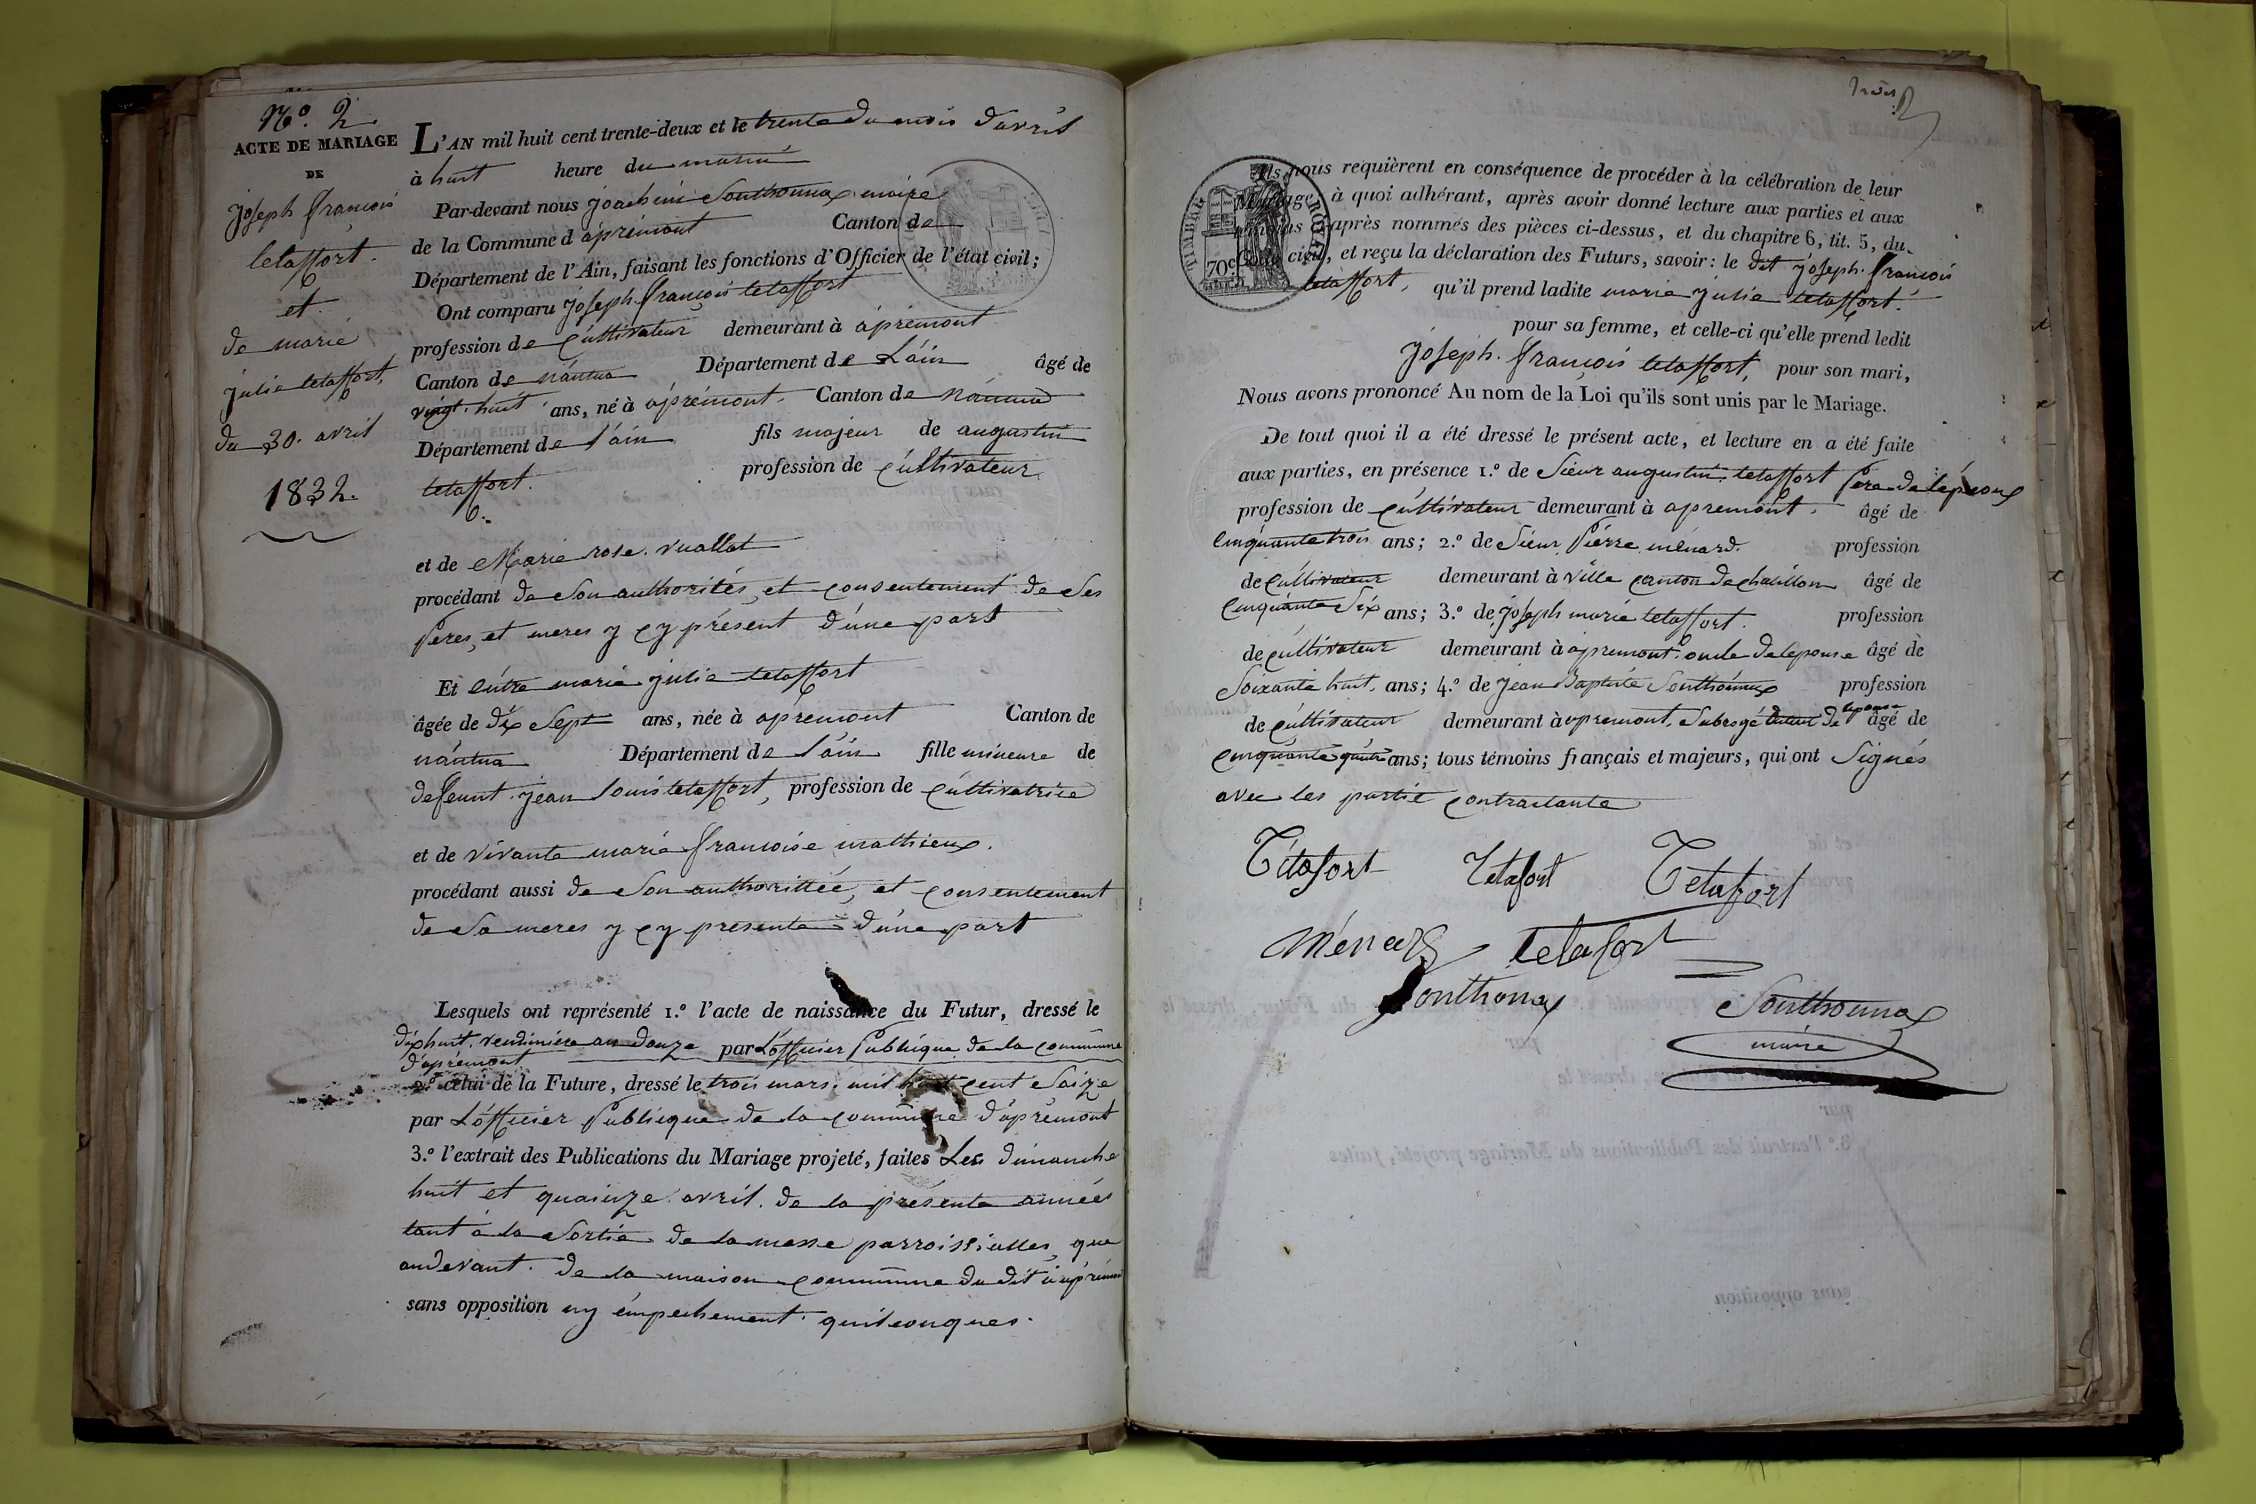 N.o 2.
ACTE DE MARIAGE
DE
joseph françois
letaffort.
et.
de marie
julie letaffort,
du 30. avril
1832.
L'AN mil huit cent trente-deux et le trente du mois d'avril
à huit heure du matin
Par-devant nous joachim Sonthonnax maire
de la Commune d'aprémont Canton de
Département de l'Ain, faisant les fonctions d'Officier de l'état civil;
Ont comparu joseph françois letaffort
profession de cultivateur demeurant à aprémont
Canton de nantua Département de L'ain âgé de
vingt. huit ans, né à aprémont. Canton de nantua
Département de l'ain fils majeur de augustin
letaffort. profession de cultivateur
et de Marie rose. vuallat
procédant de Son authorités, et consentement de Ses
peres, et meres y cy présent d'une part
Et entre marie julie letaffort
âgée de dix Sept ans, née à aprémont Canton de
nantua Département de l'ain fille mineure de
deffunt jean louis letaffort, profession de cultivatrice
et de vivante marie françoise mathieux.
procédant aussi de Son authorittée, et consentement
de Sa meres y cy presente d'une part
Lesquels ont représenté 1.o l'acte de naissance du Futur, dressé le
dix huit. vendimière an douze par L'officier Publique de la commune
d'aprémont
2.o celui de la Future, dressé le trois mars. mil huit cent Saize
par L'officier Publique de la commune d'aprémont
3.o l'extrait des Publications du Mariage projeté, faites Les dimanche
huit et quainze avril. de la présente années
tant à la Sortie de la messe parroissialles, que
audevant. de la maison commune du dit aprémont
sans opposition ny émpechement. quilconques.
trois
TIMBRE ROYAL
70 c.
Ils nous requièrent en conséquence de procéder à la célébration de leur
Mariage, à quoi adhérant, après avoir donné lecture aux parties et aux
témoins ci-après nommés des pièces ci-dessus, et du chapitre 6, tit. 5, du
Code civil, et reçu la déclaration des Futurs, savoir: le dit joseph. françois
letaffort, qu'il prend ladite marie julie letaffort.
pour sa femme, et celle-ci qu'elle prend ledit
joseph. françois letaffort, pour son mari,
Nous avons prononcé Au nom de la Loi qu'ils sont unis par le Mariage.
De tout quoi il a été dressé le présent acte, et lecture en a été faite
aux parties, en présence 1.o de Sieur augustin. letaffort Pere de l'époux
profession de cultivateur demeurant à apremont. âgé de
cinquante trois ans; 2.o de Sieur Pierre ménard. profession
de cultivateur demeurant à ville canton de chatillon âgé de
cinquante Six ans; 3.o de joseph marie letaffort. profession
de cultivateur demeurant à apremont oncle de l'epouse âgé de
Soixante huit. ans; 4.o de jean Baptiste Sonthonnax profession
de cultivateur demeurant à apremont. Subrogé tuteur de l'epouse âgé de
cinquante quatre ans; tous témoins français et majeurs, qui ont Signés
avec les partie contractante
Tétafort Tetafort Tetafort
Ménard Tetafort
Sonthonax Sonthonnax
maire